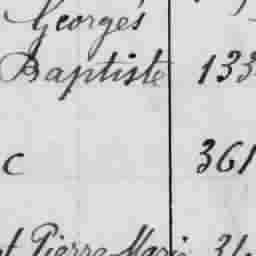 Georges
Baptiste 133
c 361
t Pierre Marie 31